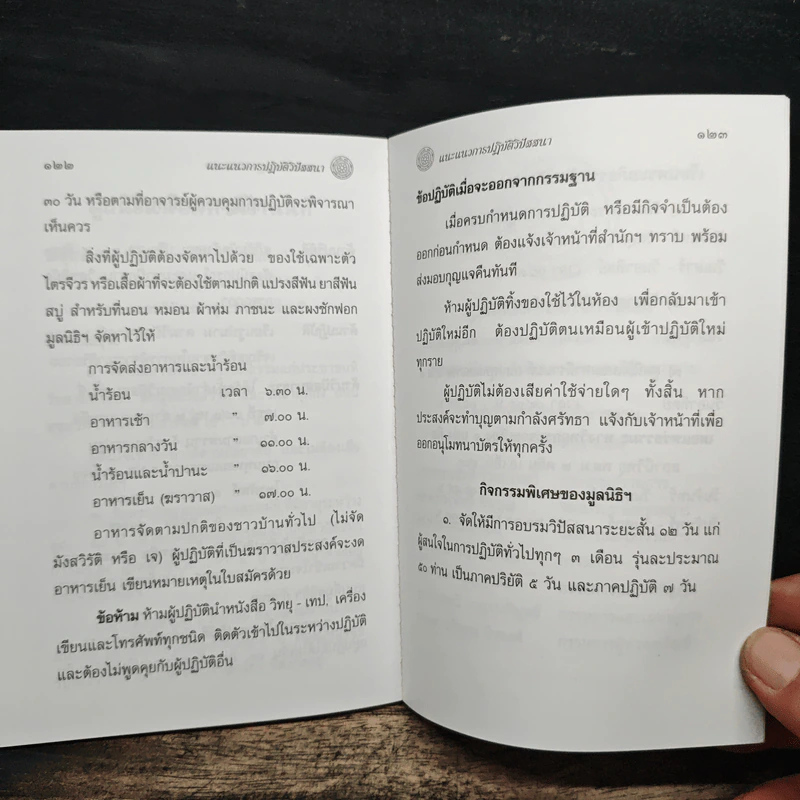 ๑๒๒
แนะแนวการปฏิบัติวิปัสสนา
๓๐ วัน หรือตามที่อาจารย์ผู้ควบคุมการปฏิบัติจะพิจารณา
เห็นควร
สิ่งที่ผู้ปฏิบัติต้องจัดหาไปด้วย ของใช้เฉพาะตัว
ไตรจีวร หรือเสื้อผ้าที่จะต้องใช้ตามปกติ แปรงสีฟัน ยาสีฟัน
สบู่ สำหรับที่นอน หมอน ผ้าห่ม ภาชนะ และผงซักฟอก
มูลนิธิฯ จัดหาไว้ให้
การจัดส่งอาหารและน้ำร้อน
น้ำร้อน เวลา ๖.๓๐ น.
อาหารเช้า " ๗.๐๐ น.
อาหารกลางวัน " ๑๑.๐๐ น.
น้ำร้อนและน้ำปานะ " ๑๖.๐๐ น.
อาหารเย็น (ฆราวาส) " ๑๗.๐๐ น.
อาหารจัดตามปกติของชาวบ้านทั่วไป (ไม่จัด
มังสวิรัติ หรือ เจ) ผู้ปฏิบัติที่เป็นฆราวาสประสงค์จะงด
อาหารเย็น เขียนหมายเหตุในใบสมัครด้วย
ข้อห้าม ห้ามผู้ปฏิบัตินำหนังสือ วิทยุ - เทป, เครื่อง
เขียนและโทรศัพท์ทุกชนิด ติดตัวเข้าไปในระหว่างปฏิบัติ
และต้องไม่พูดคุยกับผู้ปฏิบัติอื่น
แนะแนวการปฏิบัติวิปัสสนา
๑๒๓
ข้อปฏิบัติเมื่อจะออกจากกรรมฐาน
เมื่อครบกำหนดการปฏิบัติ หรือมีกิจจำเป็นต้อง
ออกก่อนกำหนด ต้องแจ้งเจ้าหน้าที่สำนักฯ ทราบ พร้อม
ส่งมอบกุญแจคืนทันที
ห้ามผู้ปฏิบัติทิ้งของใช้ไว้ในห้อง เพื่อกลับมาเข้า
ปฏิบัติใหม่อีก ต้องปฏิบัติตนเหมือนผู้เข้าปฏิบัติใหม่
ทุกราย
ผู้ปฏิบัติไม่ต้องเสียค่าใช้จ่ายใดๆ ทั้งสิ้น หาก
ประสงค์จะทำบุญตามกำลังศรัทธา แจ้งกับเจ้าหน้าที่เพื่อ
ออกอนุโมทนาบัตรให้ทุกครั้ง
กิจกรรมพิเศษของมูลนิธิฯ
๑. จัดให้มีการอบรมวิปัสสนาระยะสั้น ๑๒ วัน แก่
ผู้สนใจในการปฏิบัติทั่วไปทุกๆ ๓ เดือน รุ่นละประมาณ
๕๐ ท่าน เป็นภาคปริยัติ ๕ วัน และภาคปฏิบัติ ๗ วัน